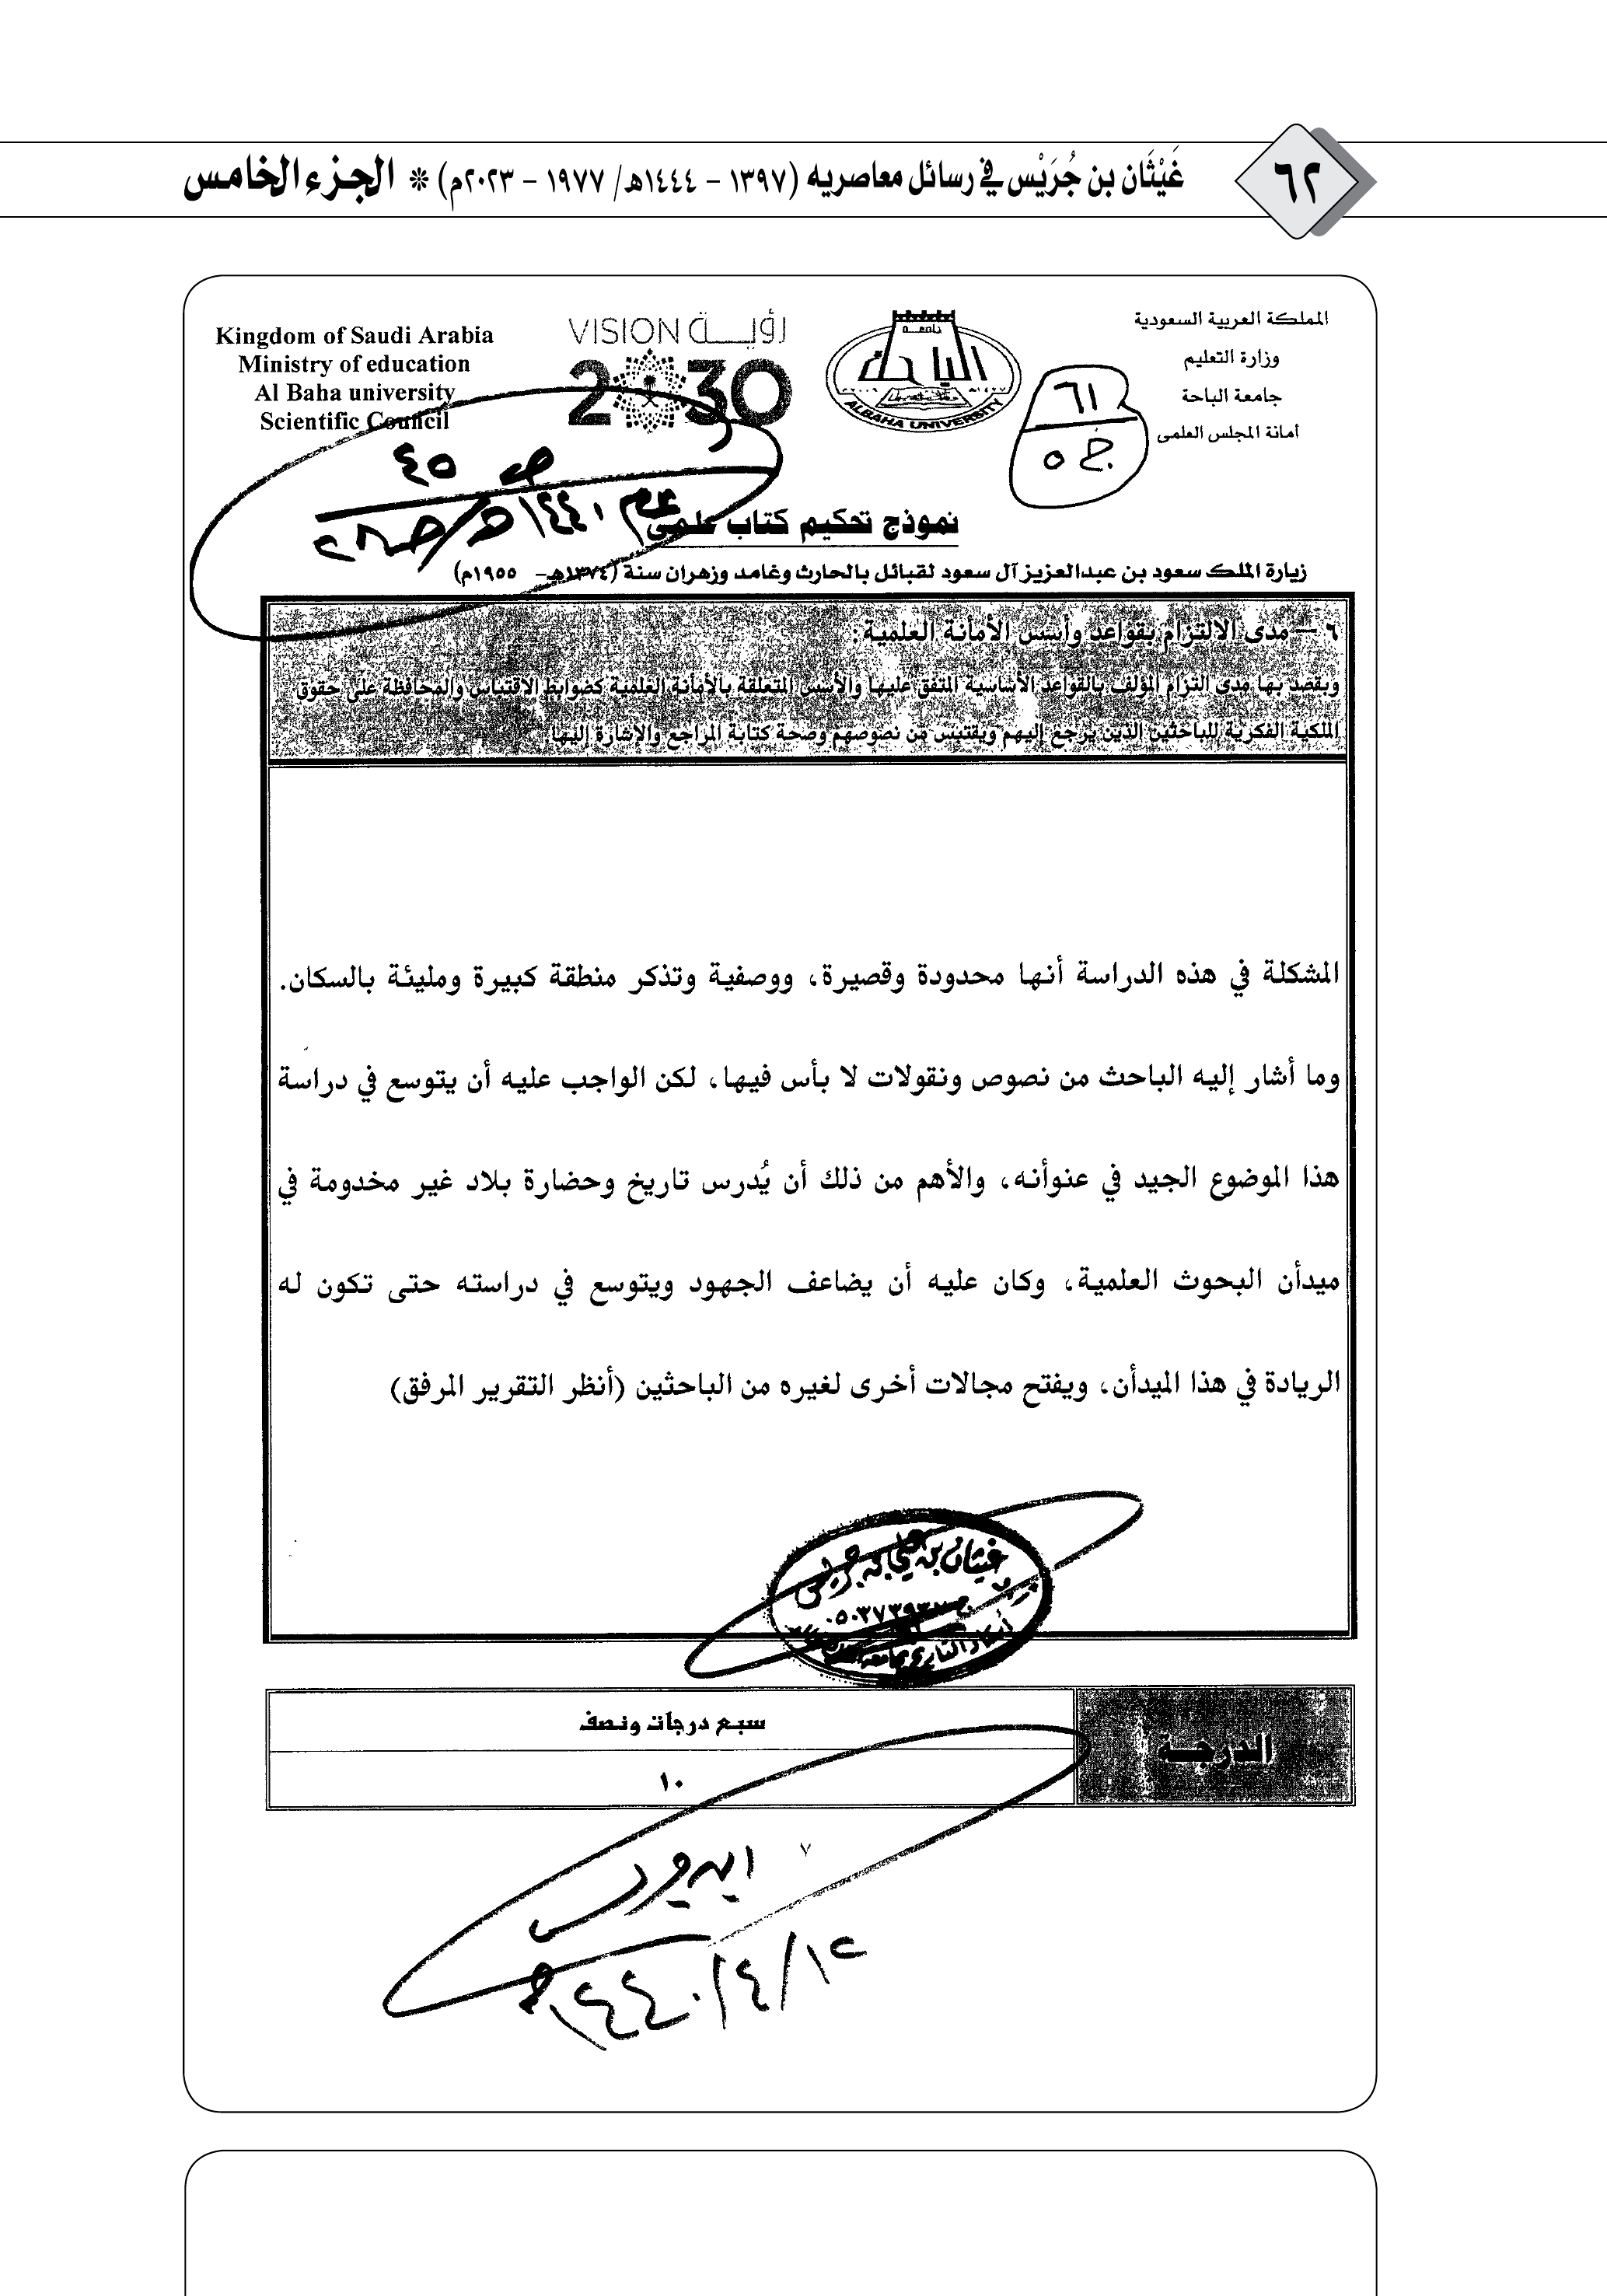 ٦٢
غَيْثَان بن جُرَيْس في رسائل معاصريه (١٣٩٧ - ١٤٤٤هـ/ ١٩٧٧ - ٢٠٢٣م) * الجزء الخامس
المملكة العربية السعودية
وزارة التعليم
جامعة الباحة
أمانة المجلس العلمي
جامعة
الباحة
ALBAHA UNIVERSITY
VISION رؤيـــة
2030
Kingdom of Saudi Arabia
Ministry of education
Al Baha university
Scientific Council
٦١
ج ٥
ص ٤٥
نموذج تحكيم كتاب علمي
زيارة الملك سعود بن عبدالعزيز آل سعود لقبائل بالحارث وغامد وزهران سنة (١٣٧٤هـ- ١٩٥٥م)
٦ – مدى الالتزام بقواعد وأسس الأمأنة العلمية:
ويقصد بها مدى التزام المؤلف بالقواعد الأساسية المتفق عليها والأسس المتعلقة بالأمأنة العلمية كضوابط الاقتباس والمحافظة على حقوق
الملكية الفكرية للباحثين الذين يرجع إليهم ويقتبس من نصوصهم وصحة كتابة المراجع والإشارة إليها
المشكلة في هذه الدراسة أنها محدودة وقصيرة، ووصفية وتذكر منطقة كبيرة ومليئة بالسكان.
وما أشار إليه الباحث من نصوص ونقولات لا بأس فيها، لكن الواجب عليه أن يتوسع في دراسة
هذا الموضوع الجيد في عنوأنه، والأهم من ذلك أن يُدرس تاريخ وحضارة بلاد غير مخدومة في
ميدأن البحوث العلمية، وكان عليه أن يضاعف الجهود ويتوسع في دراسته حتى تكون له
الريادة في هذا الميدأن، ويفتح مجالات أخرى لغيره من الباحثين (أنظر التقرير المرفق)
غيثان بن علي بن جريس
أستاذ التاريخ بجامعة
الدرجــة
سبع درجات ونصف
١٠
٧
١٢/٤/١٤٤٠هـ